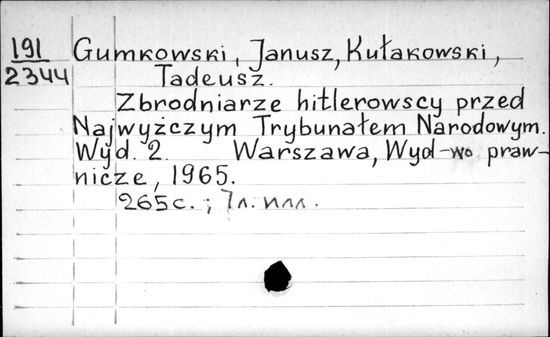 191 Gumkowski, Janusz, Kułakowski,
2344 Tadeusz.
Zbrodniarze hitlerowscy przed
Najwyżczym Trybunałem Narodowym.
Wyd. 2. Warszawa, Wyd-wo praw-
nicze, 1965.
265с.; 7л. илл.